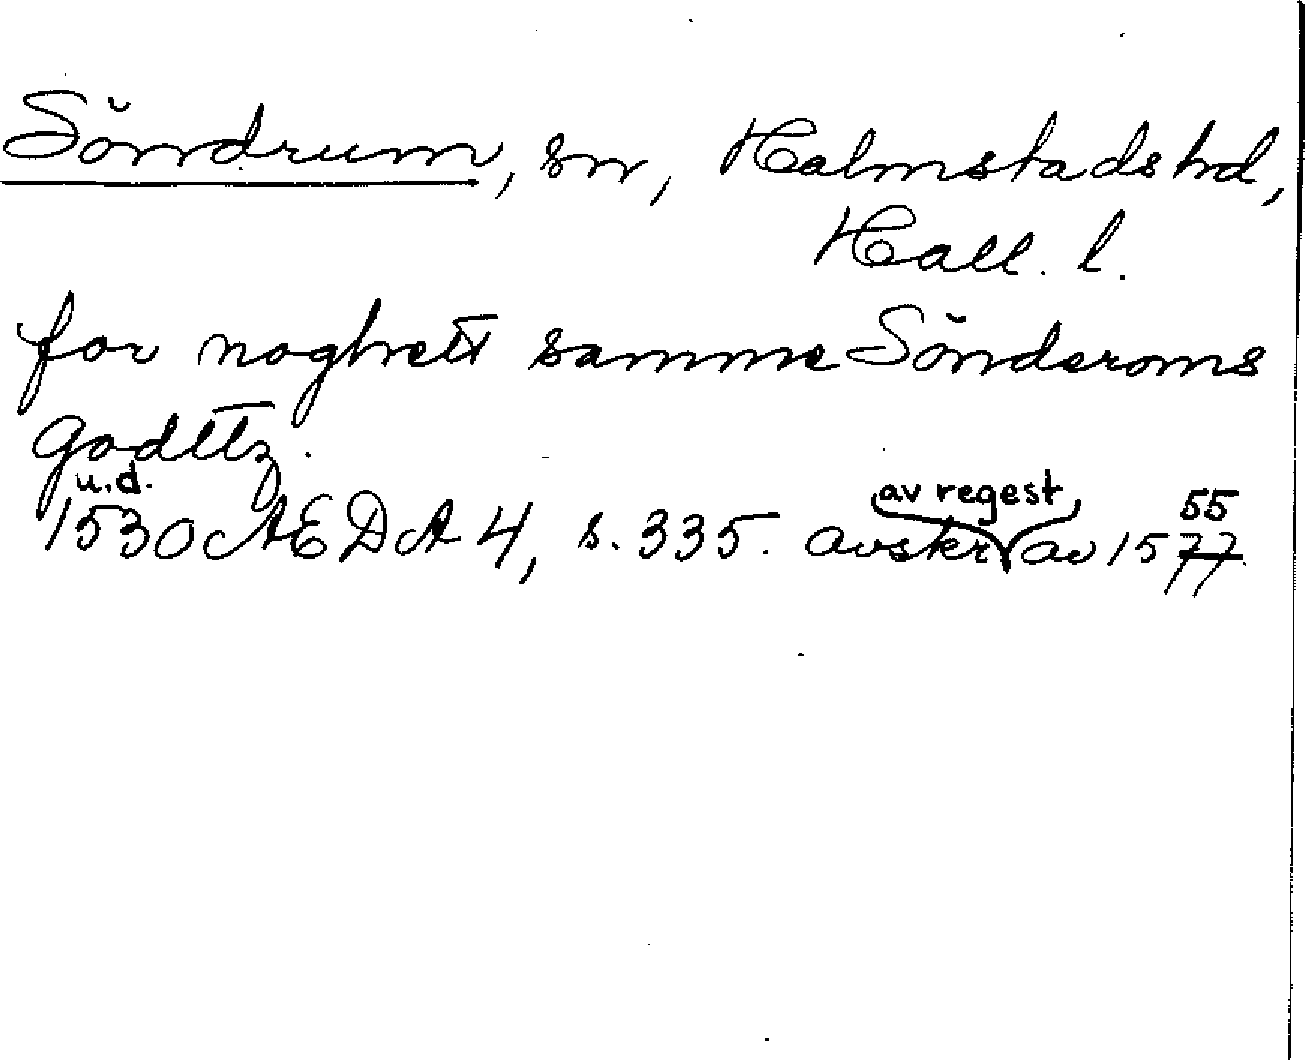 Söndrum, sn, Halmstads hd,
Hall. l.
for noghrett samme Sönderoms
godttz.
u.d.
1530 AEDA 4, s. 335. avskr av regest av 1577 55